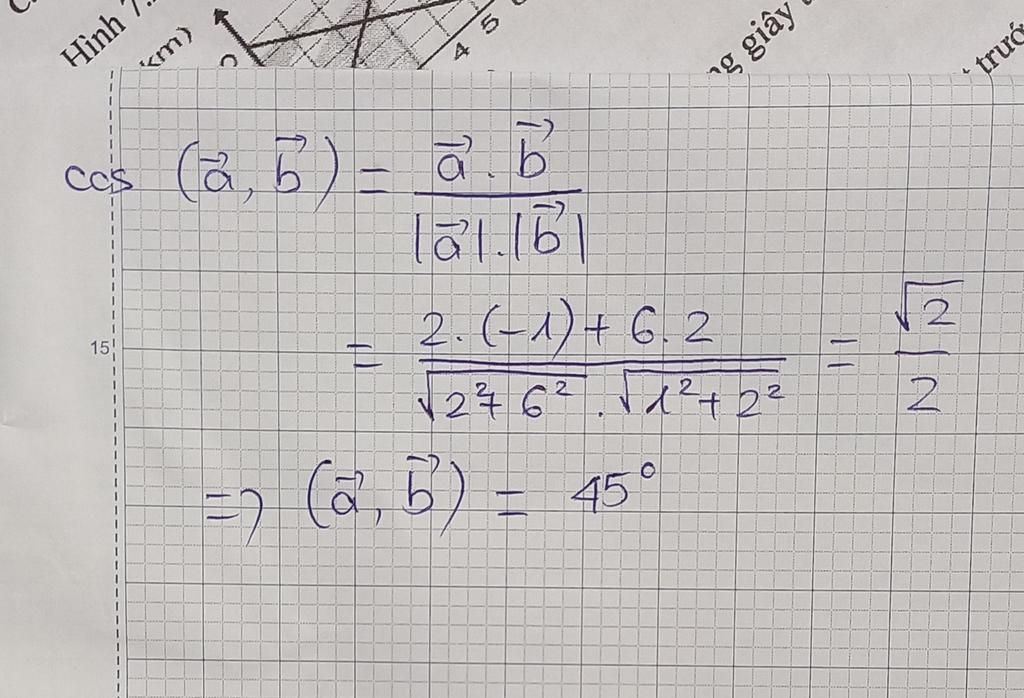 Hình 7.
km)
0
4 5
ng giây
trướ
cos (a⃗, b⃗) = a⃗ . b⃗ / |a⃗| . |b⃗|
15
= 2 . (-1) + 6 . 2 / √(2² + 6²) . √(1² + 2²) = √2 / 2
=> (a⃗, b⃗) = 45°